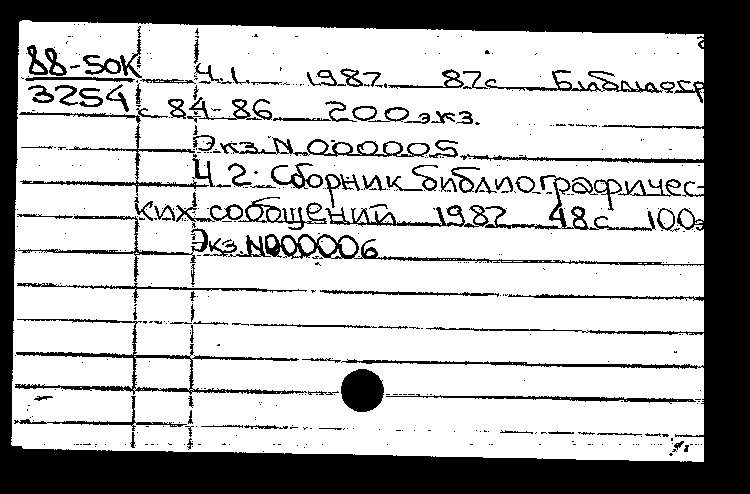 88-50К Ч.1. 1987. 87с Библиогр
3254 с 84-86 200 экз.
Экз. N 000005.
Ч 2: Сборник библиографичес-
ких сообщений 1987 48с 100э
Экз. N000006